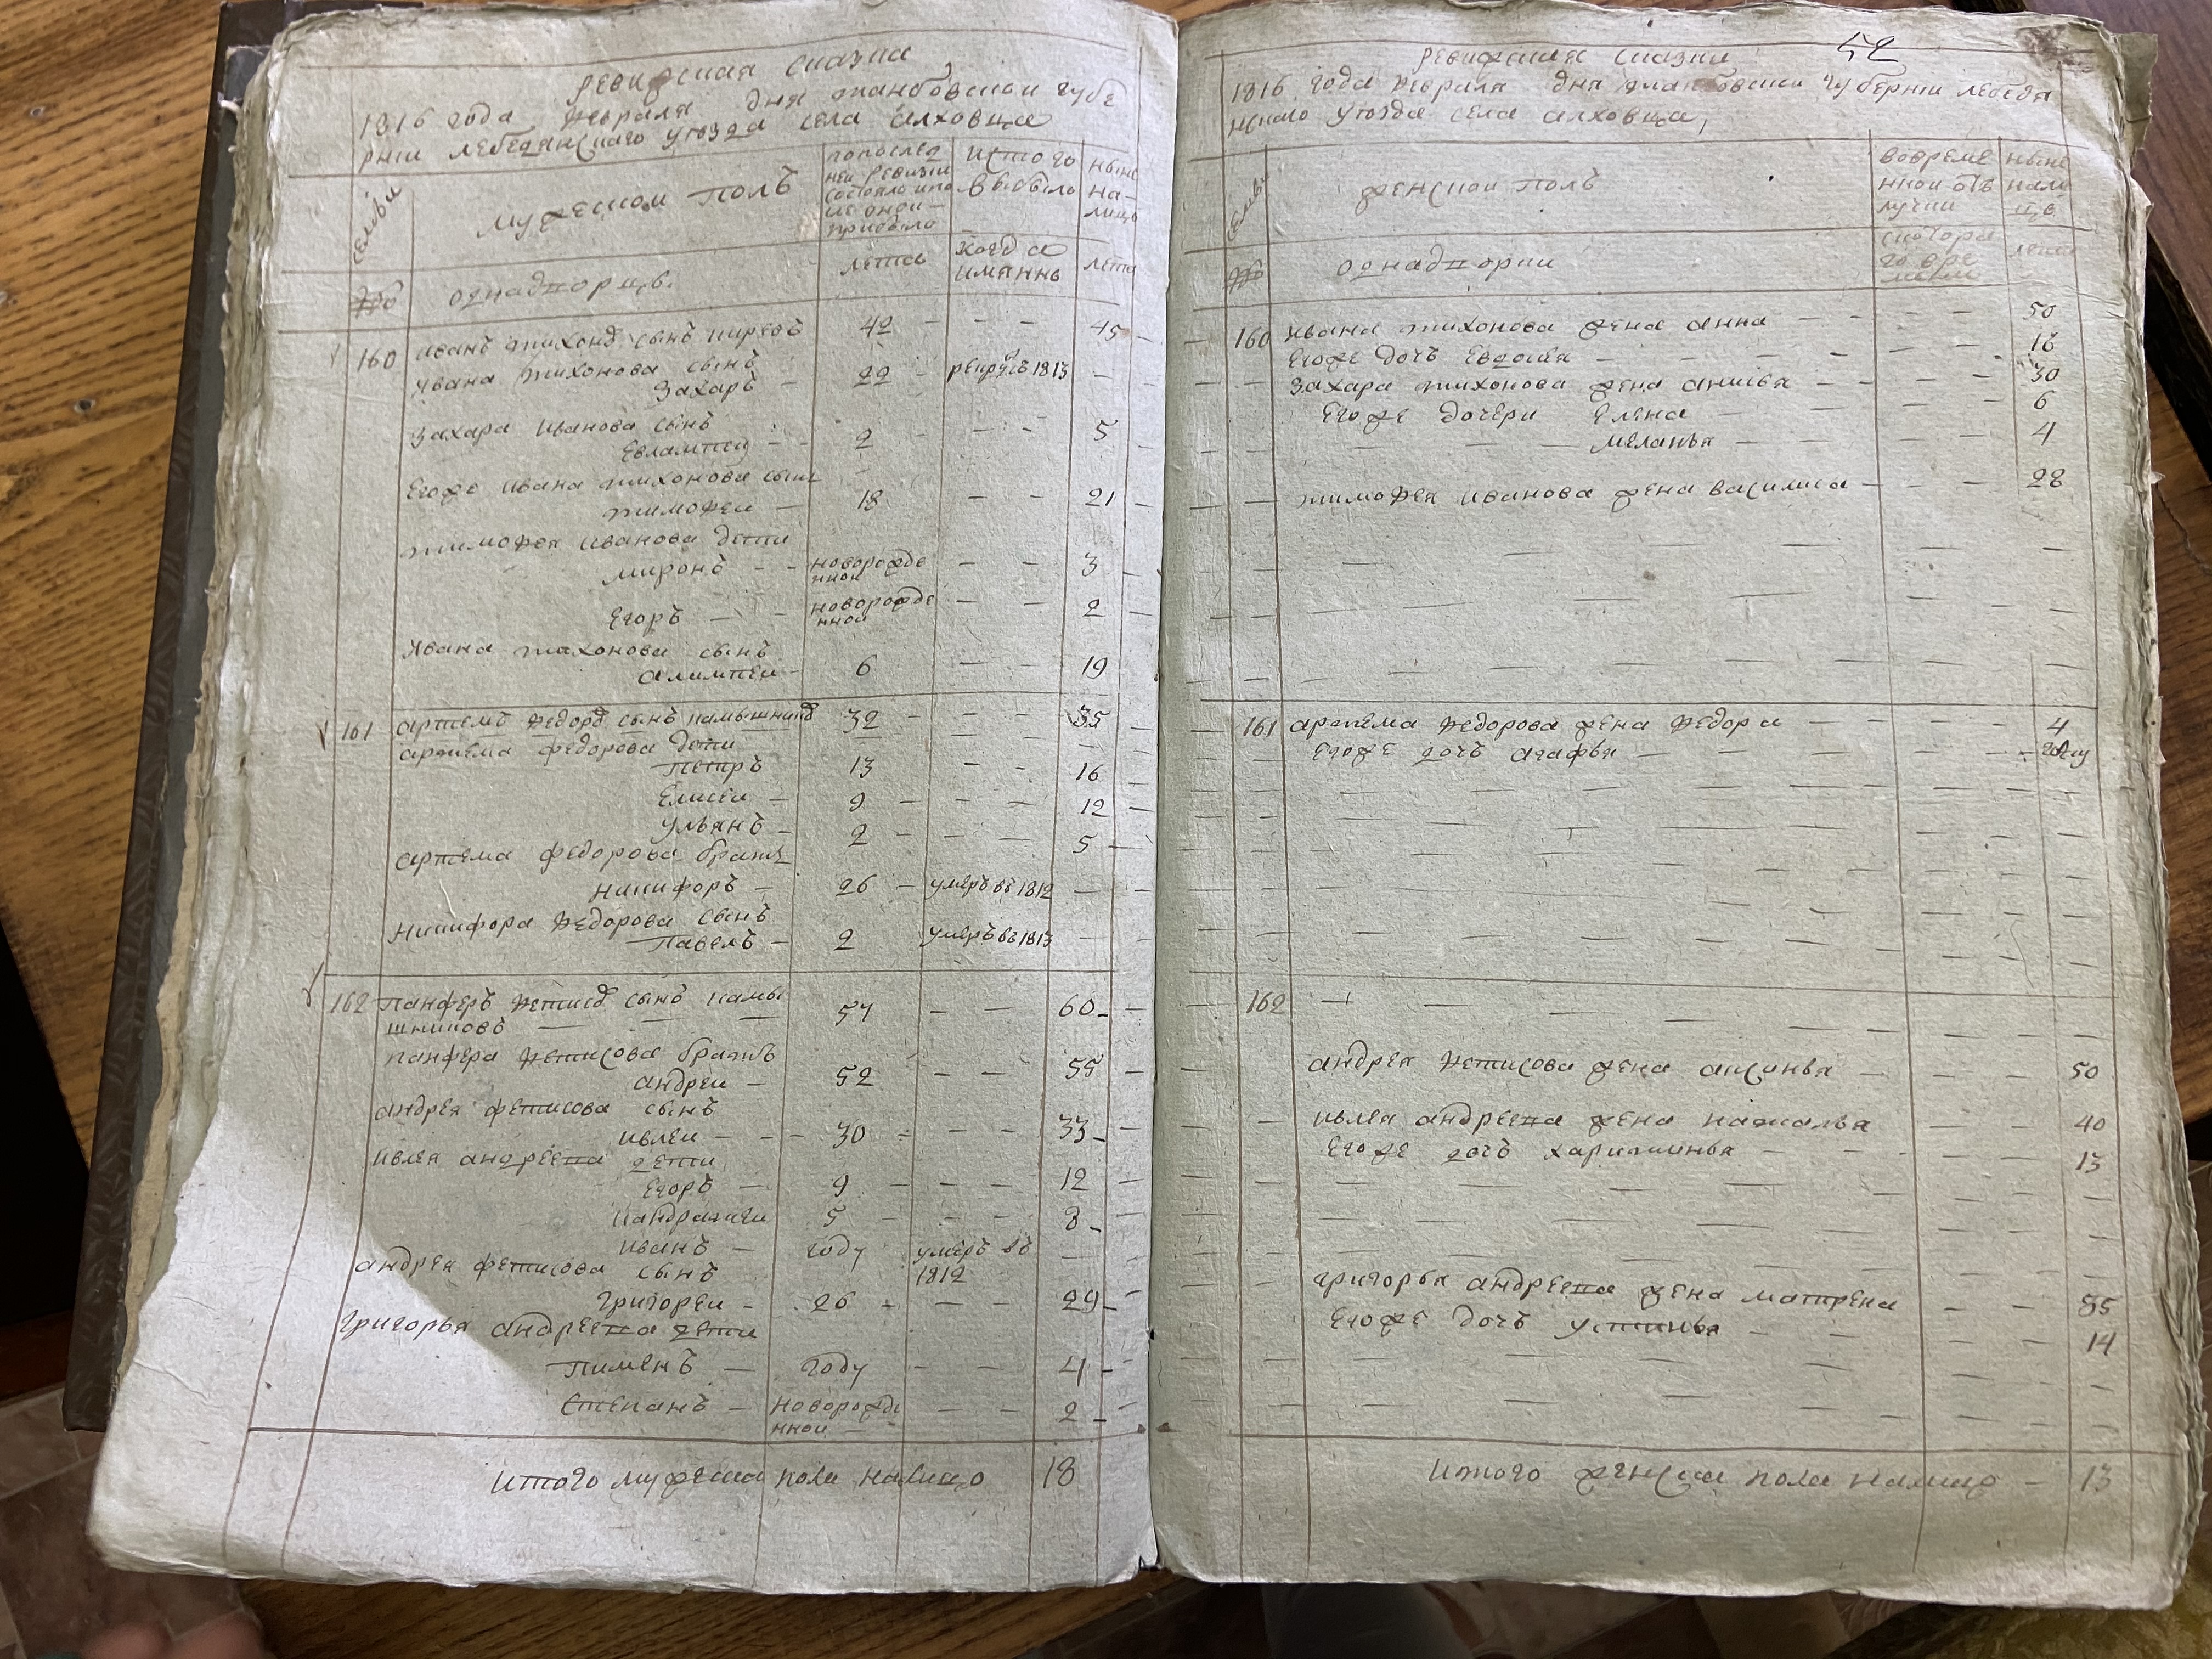 ревижская сказка
1816 года февраля дня танбовской губе
рнии лебедянскаго уезда села ольховца
семьи
мужескои полъ
попослед
ней ревизии
состояло ипо
ис онои
прибыло
исто го
выбыло
ныне
на-
лицо
лета
когда
имянно
лета
однадворцы
160 иванъ тихоновъ сынъ
42 - - - 45
ивана тихонова сынъ
захаръ - 22 - рекрутъ 1813 -
захара иванова сынъ
евлампей - 2 - - - 5
егоже ивана тихонова сынъ
тимофеи - 18 - - 21
тимофея иванова дети
миронъ - - новорожде
нной - - 3
егоръ - новорожде
нной - - 2
ивана тихонова сынъ
алимпеи - 6 - - 19
161 артемъ федоровъ сынъ камышников 32 - - - 35
артема федорова дети
петръ 13 - - 16
елисеи - 9 - - - 12
ульянъ - 2 - - - 5
артема федорова братъ
никифоръ - 26 - умеръ въ 1812 -
никифора федорова сынъ
павелъ - 2 умеръ въ 1813 -
162 панферъ фетисов сынъ камы
шниковъ - 57 - - 60
панфера фетисова братъ
андреи - 52 - - 55
андрея фетисова сынъ
ивлеи - - 30 - - - 33
ивлея андреева дети
егоръ - 9 - - - 12
кандратеи 5 - - - 8
иванъ - году умеръ въ
1812
андрея фетисова сынъ
григореи - 26 - - - 29
григорья андреева дети
пименъ - году - - 4
степанъ - новорожде
нной - - - 2
итого мужеска пола налицо 18
52
ревижская сказка
1816 года февраля дня танбовской губернии лебедя
нскаго уезда села ольховца
семьи
женскои полъ
вовреме
нной отъ
лучки
ныне
нали
цо
однадворки
скотора
го вре
мени
лета
160 ивана тихонова жена анна - - - 50
егоже дочь евдокея - - - 18
захара тихонова жена анисья - - - 30
егоже дочери елена - - - 6
- - меланья - - - 4
тимофея иванова жена василиса - - - 28
161 артема федорова жена федора - - - 4
егоже дочь агафья - - -
162 - -
андрея фетисова жена аксинья - - - 50
ивлея андреева жена наталья - - 40
егоже дочь харитинья - - - 13
григорья андреева жена матрена - - 55
егоже дочь устинья - - - 14
итого женска пола налицо - 13